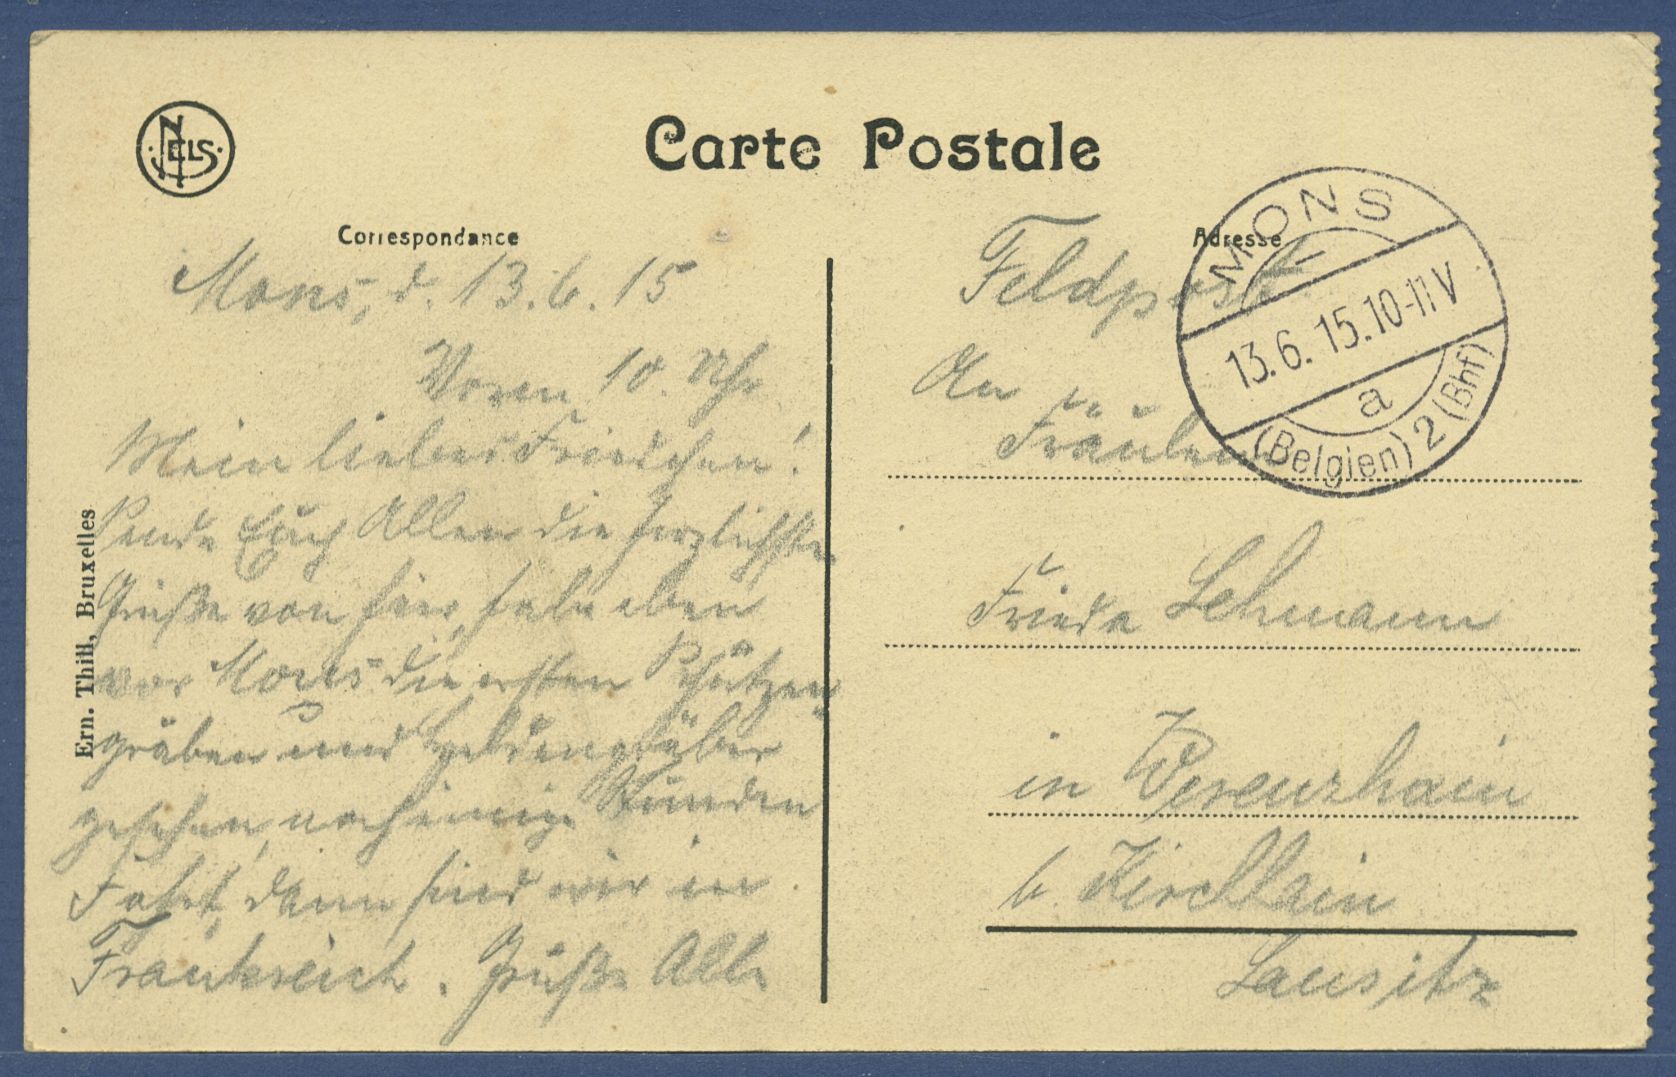 NELS
Carte Postale
Correspondance
Adresse
Mons, d. 13.6.15
Vorm 10 Uhr
Mein liebes Friedchen!
Sende Euch Allen die herzlichsten
Grüße von hier, habe eben
vor Mons die ersten Schützen
gräben und Heldengräber
gesehen, noch einige Stunden
Fahrt, dann sind wir in
Frankreich. Grüße Alle
Ern. Thill, Bruxelles
Feldpost
MONS
13.6.15.10-11V
a
(Belgien) 2 (Bhf)
An
Fräulein
Frieda Lehmann
in Werenzhain
b. Kirchhain
Lausitz